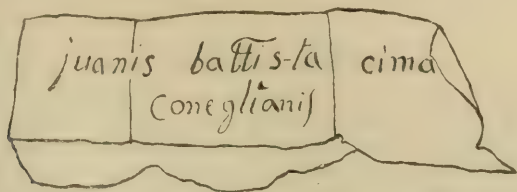 juanis battis-ta cima
coneglianis